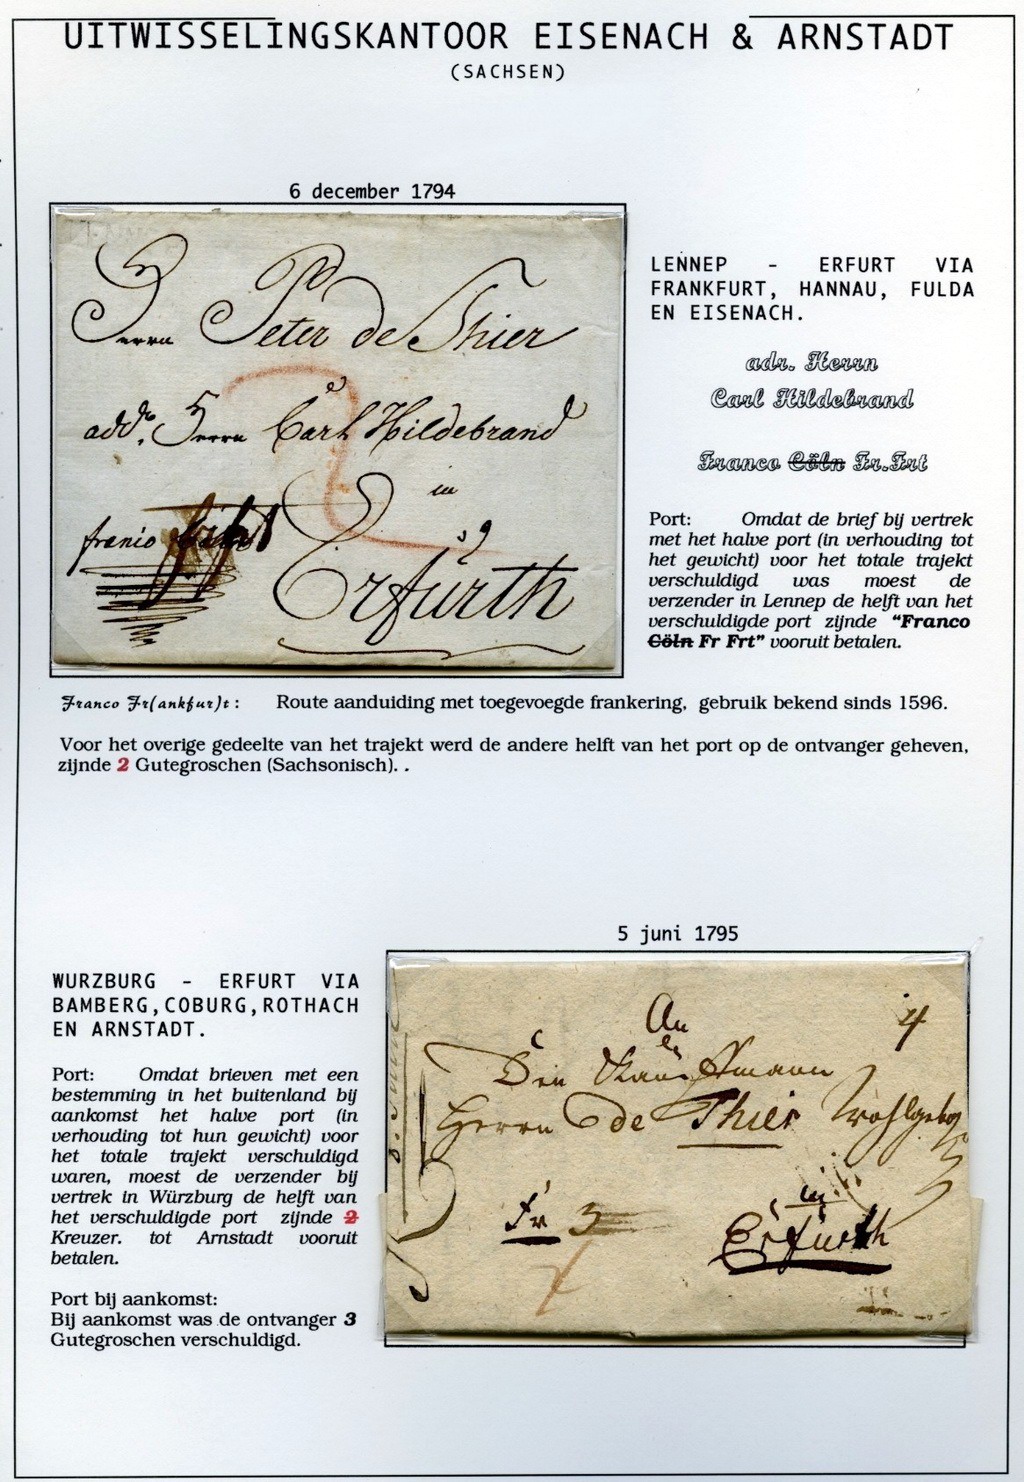 UITWISSELINGSKANTOOR EISENACH & ARNSTADT
(SACHSEN)
6 december 1794
Herrn Peter de Thier
add. Herrn Carl Hildebrand
in
franco
Erfürth
LENNEP - ERFURT VIA
FRANKFURT, HANNAU, FULDA
EN EISENACH.
adr. Herrn
Carl Hildebrand
Franco Cöln Fr.Frt
Port: Omdat de brief bij vertrek
met het halve port (in verhouding tot
het gewicht) voor het totale trajekt
verschuldigd was moest de
verzender in Lennep de helft van het
verschuldigde port zijnde "Franco
Cöln Fr Frt" vooruit betalen.
Franco Fr(ankfur)t: Route aanduiding met toegevoegde frankering, gebruik bekend sinds 1596.
Voor het overige gedeelte van het trajekt werd de andere helft van het port op de ontvanger geheven,
zijnde 2 Gutegroschen (Sachsonisch). .
5 juni 1795
WURZBURG - ERFURT VIA
BAMBERG,COBURG,ROTHACH
EN ARNSTADT.
Port: Omdat brieven met een
bestemming in het buitenland bij
aankomst het halve port (in
verhouding tot hun gewicht) voor
het totale trajekt verschuldigd
waren, moest de verzender bij
vertrek in Würzburg de helft van
het verschuldigde port zijnde 2
Kreuzer. tot Arnstadt vooruit
betalen.
Port bij aankomst:
Bij aankomst was de ontvanger 3
Gutegroschen verschuldigd.
An
4
Den Kauffmann
Herrn de Thier Wohlgeb
Fr 3
in
Erfürth